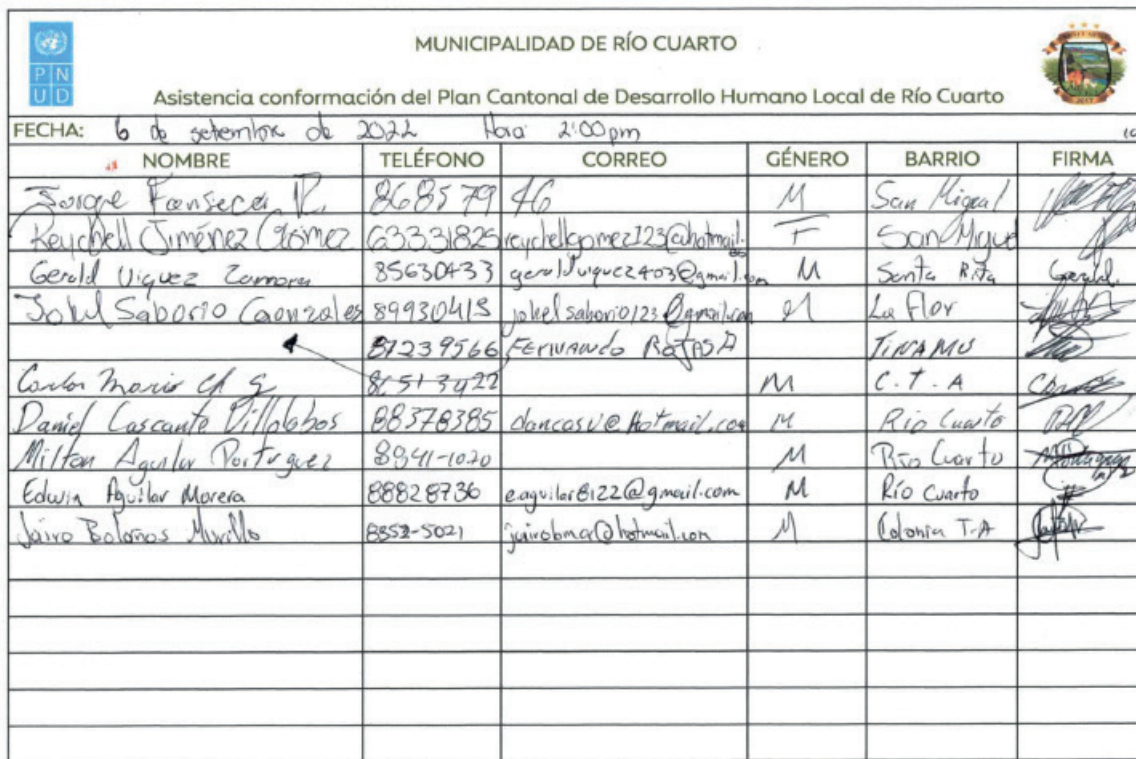 PNUD
MUNICIPALIDAD DE RÍO CUARTO
Asistencia conformación del Plan Cantonal de Desarrollo Humano Local de Río Cuarto
FECHA: 6 de setembre de 2022 Hora 2:00pm
NOMBRE TELÉFONO CORREO GÉNERO BARRIO FIRMA
Jorge Fonseca R. 86857946 M San Miguel
Reychell Jiménez Gómez 63331825 reychellgomez123@hotmail. F San Migue
Gerald Viquez Zamora 85630433 geraldviquez2403@gmail.com M Santa Rita Gerald.
Johel Saborio Gaonzales 89930415 johelsaborio123@gmail.com M La Flor
87239566 FERNANDO ROJAS A TINAMU
Carlos Mario Ch G 86513422 M C.T.A
Daniel Cascante Villalobos 88378385 dancasv@hotmail.com M Río Cuarto
Milton Aguilar Portuguez 8941-1020 M Río Cuarto
Edwin Aguilar Morera 88828736 eaguilar8122@gmail.com M Río Cuarto
Jairo Bolaños Murillo 8352-5021 jairobmar@hotmail.com M Colonia T-A